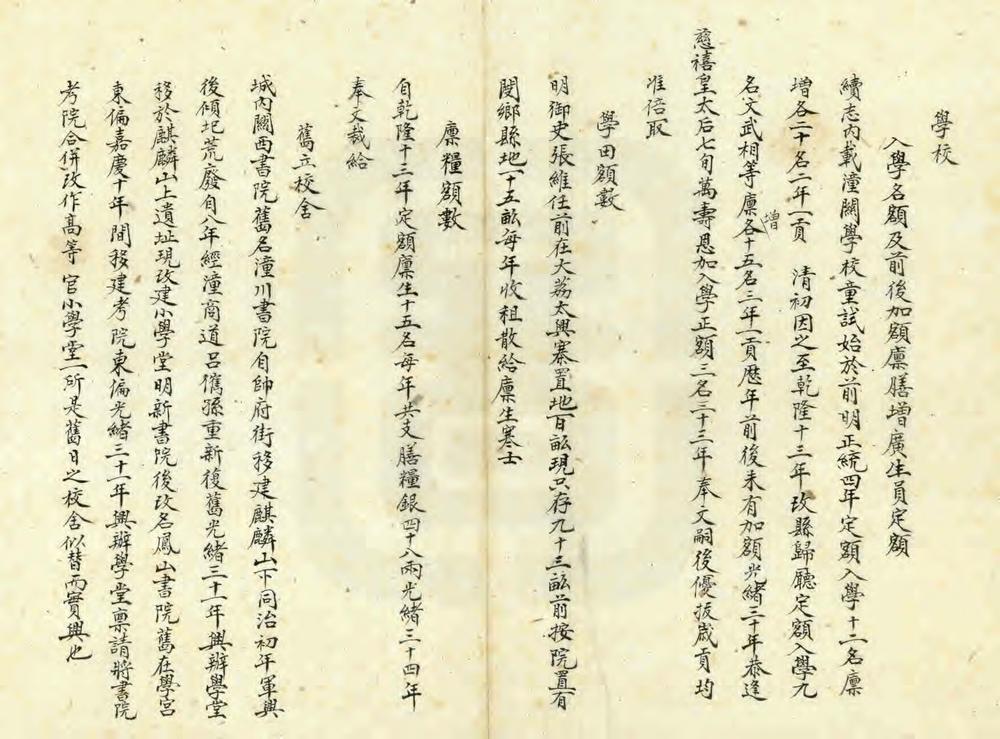 學校
入學名額及前後加額廪膳增廣生員定額
續志內載潼關學校童試始於前明正統四年定額入學十二名廪
增各二十名二年一貢 清初因之至乾隆十三年攺縣歸廳定額入學九
名文武相等廪增各十五名三年一貢歷年前後未有加額光緒三十年恭逢
慈禧皇太后七旬萬壽恩加入學正額三名三十三年奉文嗣後優拔歲貢均
准倍取
學田額數
明御史張維任前在大荔太興寨置地百畝現只存九十三畝前按院置有
閿鄉縣地一十五畝每年收租散給廪生寒士
廪糧額數
自乾隆十三年定額廪生十五名每年共支膳糧銀四十八兩光緒三十四年
奉文裁給
舊立校舍
城內關西書院舊名潼川書院自帥府街移建麒麟山下同治初年軍興
後傾圮荒廢自八年經潼商道呂儁孫重新復舊光緒三十一年興辦學堂
移於麒麟山上遺址現攺建小學堂明新書院後攺名鳳山書院舊在學宮
東偏嘉慶十年間移建考院東偏光緒三十一年興辦學堂稟請將書院
考院合併攺作高等官小學堂一所是舊日之校舍似替而實興也